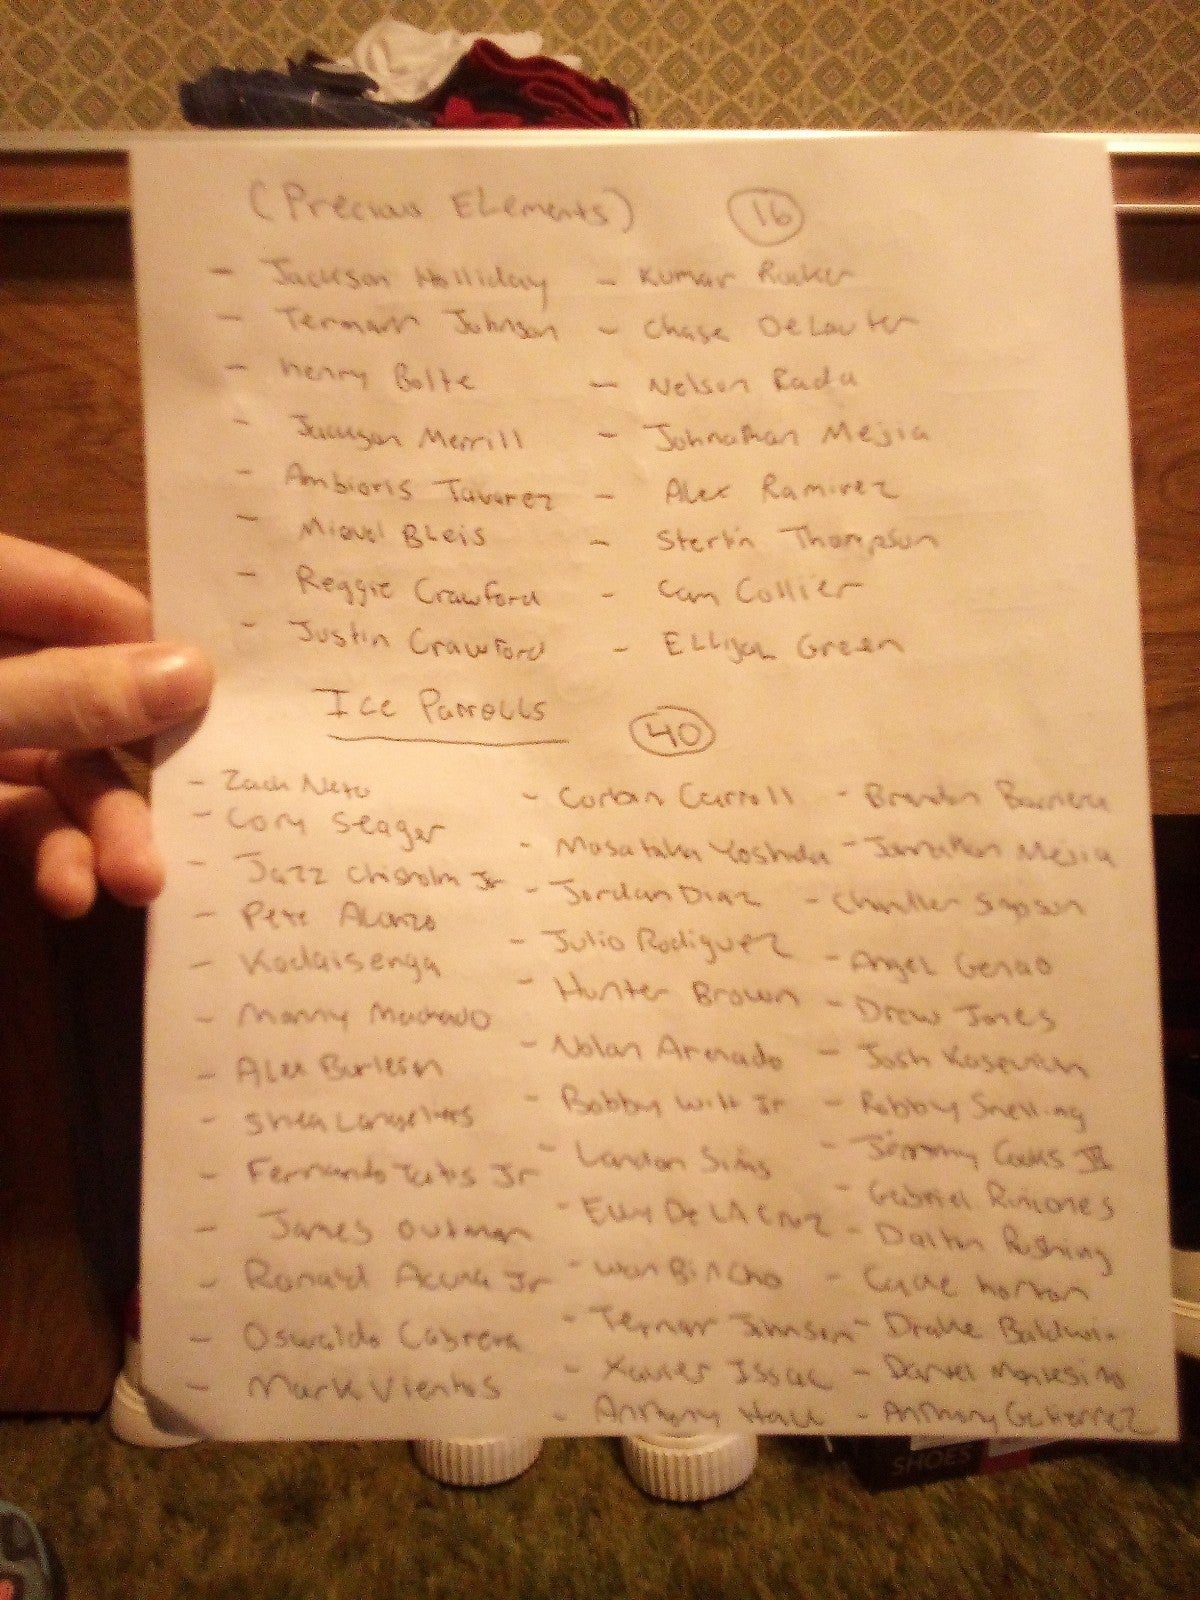 (Precious Elements) 16
- Jackson Holliday - Kumar Rocker
- Termarr Johnson - Chase DeLauter
- Henry Bolte - Nelson Rada
- Jackson Merrill - Johnathan Mejia
- Ambioris Tavarez - Alex Ramirez
- Miguel Bleis - Sterlin Thompson
- Reggie Crawford - Cam Collier
- Justin Crawford - Ellijah Green
Ice Parrolls 40
- Zach Neto - Corbin Carroll - Brandon Barriera
- Cory Seager - Masataka Yoshida - Jonathan Mejia
- Jazz Chisholm Jr - Jordan Diaz - Chandler Simpson
- Pete Alonzo - Julio Rodiguez - Angel Genao
- Kodaisenga - Hunter Brown - Drew Jones
- Manny Machado - Nolan Arenado - Josh Kasevich
- Alec Burleson - Bobby Witt Jr - Robby Snelling
- Shea Langeliers - Landon Sims - Jimmy Crooks III
- Fernando Tatis Jr - Elly De LA Cruz - Gabriel Rincones
- James Outman - Won Bin Cho - Dalton Rushing
- Ronald Acuna Jr - Termar Johnson - Cade Horton
- Oswaldo Cabrera - Xavier Issac - Drake Baldwin
- Mark Vientos - Anthony Hall - Daniel Montesino
- Anthony Gutierrez
SHOES